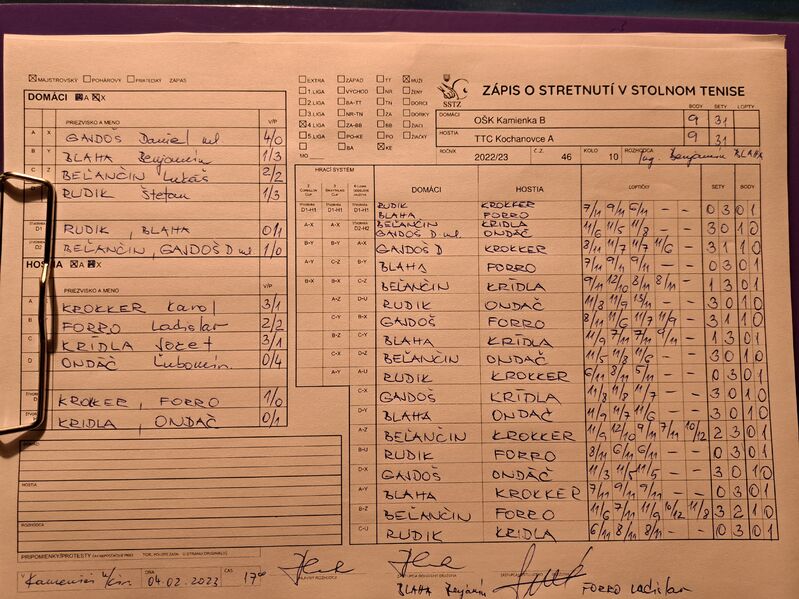 MAJSTROVSKÝ POHÁROVÝ PRIATEĽSKÝ ZÁPAS
DOMÁCI A X
PRIEZVISKO A MENO V/P
A X GAJDOŠ Daniel ml 4/0
B Y BLAHA Benjamín 1/3
C Z BEĽANČIN Lukáš 2/2
RUDIK Štefan 1/3
D1 RUDIK, BLAHA 0/1
D2 BEĽANČIN, GAJDOŠ D ml 1/0
HOSTIA A X
PRIEZVISKO A MENO V/P
A KROKKER Karol 3/1
B FORRO Ladislav 2/2
C KRIDLA Jozef 3/1
D ONDÁČ Ľubomír 0/4
KROKER, FORRO 1/0
KRIDLA, ONDAČ 0/1
HOSTIA
ROZHODCA
PRIPOMIENKY/PROTESTY
V Kamenici n/Cir. DŇA 04.02.2023 ČAS 17⁰⁰
EXTRA ZÁPAD TT MUŽI
1. LIGA VÝCHOD NR ŽENY
2. LIGA BA-TT TN DORCI
3. LIGA NR-TN ZA DORKY
4 LIGA ZA-BB BB ŽIACI
5. LIGA PO-KE PO ŽIAČKY
BA KE
MO
SSTZ
ZÁPIS O STRETNUTÍ V STOLNOM TENISE
BODY SETY LOPTY
DOMÁCI OŠK Kamienka B 9 31
HOSTIA TTC Kochanovce A 9 31
ROČNÍK 2022/23 Č.Z. 46 KOLO 10 ROZHODCA Ing. Benjamín BLAHA
HRACÍ SYSTÉM
DOMÁCI HOSTIA LOPTIČKY SETY BODY
D1-H1 D1-H1 D1-H1 RUDIK KROKKER
BLAHA FORRO 7/11 9/11 6/11 - - 0 3 0 1
A-X A-Y D2-H2 BEĽANČIN KRIDLA
GAJDOŠ D ml. ONDAČ 11/6 11/5 11/8 - - 3 0 1 0
B-Y B-X A-X GAJDOŠ D KROKKER 8/11 11/7 11/7 11/6 - 3 1 1 0
A-Y C-Z B-Y BLAHA FORRO 7/11 9/11 9/11 - - 0 3 0 1
B-X A-X C-Z BEĽANČIN KRÍDLA 9/11 12/10 8/11 8/11 - 1 3 0 1
A-Z D-U RUDIK ONDAČ 11/8 11/9 13/11 - - 3 0 1 0
B-X GAJDOŠ FORRO 8/11 11/6 11/7 11/9 - 3 1 1 0
B-Z C-Y BLAHA KRIDLA 11/9 7/11 7/11 9/11 - 1 3 0 1
C-X D-Z BEĽANČIN ONDAČ 11/5 11/8 11/6 - - 3 0 1 0
A-Y A-U RUDIK KROKKER 6/11 8/11 5/11 - - 0 3 0 1
C-X GAJDOŠ KRIDLA 11/8 11/8 11/7 - - 3 0 1 0
D-Y BLAHA ONDAČ 11/9 11/7 11/6 - - 3 0 1 0
A-Z BEĽANČIN KROKKER 11/9 12/10 9/11 7/11 10/12 2 3 0 1
B-U RUDIK FORRO 8/11 6/11 6/11 - - 0 3 0 1
D-X GAJDOŠ ONDÁČ 11/3 11/5 11/5 - - 3 0 1 0
A-Y BLAHA KROKKER 7/11 9/11 9/11 - - 0 3 0 1
B-Z BEĽANČIN FORRO 11/6 7/11 11/9 10/12 11/8 3 2 1 0
C-U RUDIK KRIDLA 6/11 8/11 8/11 - - 0 3 0 1
BLAHA Benjamín FORRO Ladislav